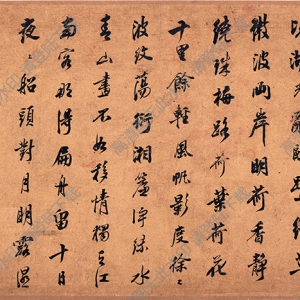 微波兩岸明荷香靜
繞珠梅路荷葉荷花
十里餘輕風帆影度徐〻
波紋蕩衍湘簾浮綠水
青山畫不如移情獨立江
南客那得扁舟留十日
夜〻船頭對月明露濕